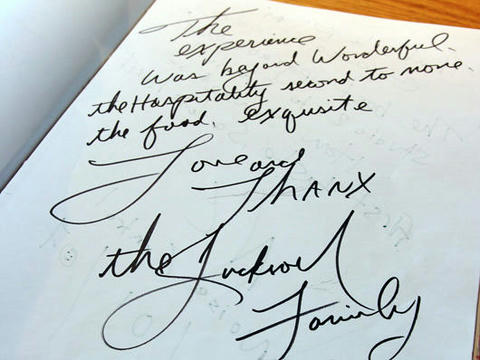 The
experience
Was beyond Wonderful.
the Hospitality second to none.
the food. exquisite
Love and
THANX
the
Family